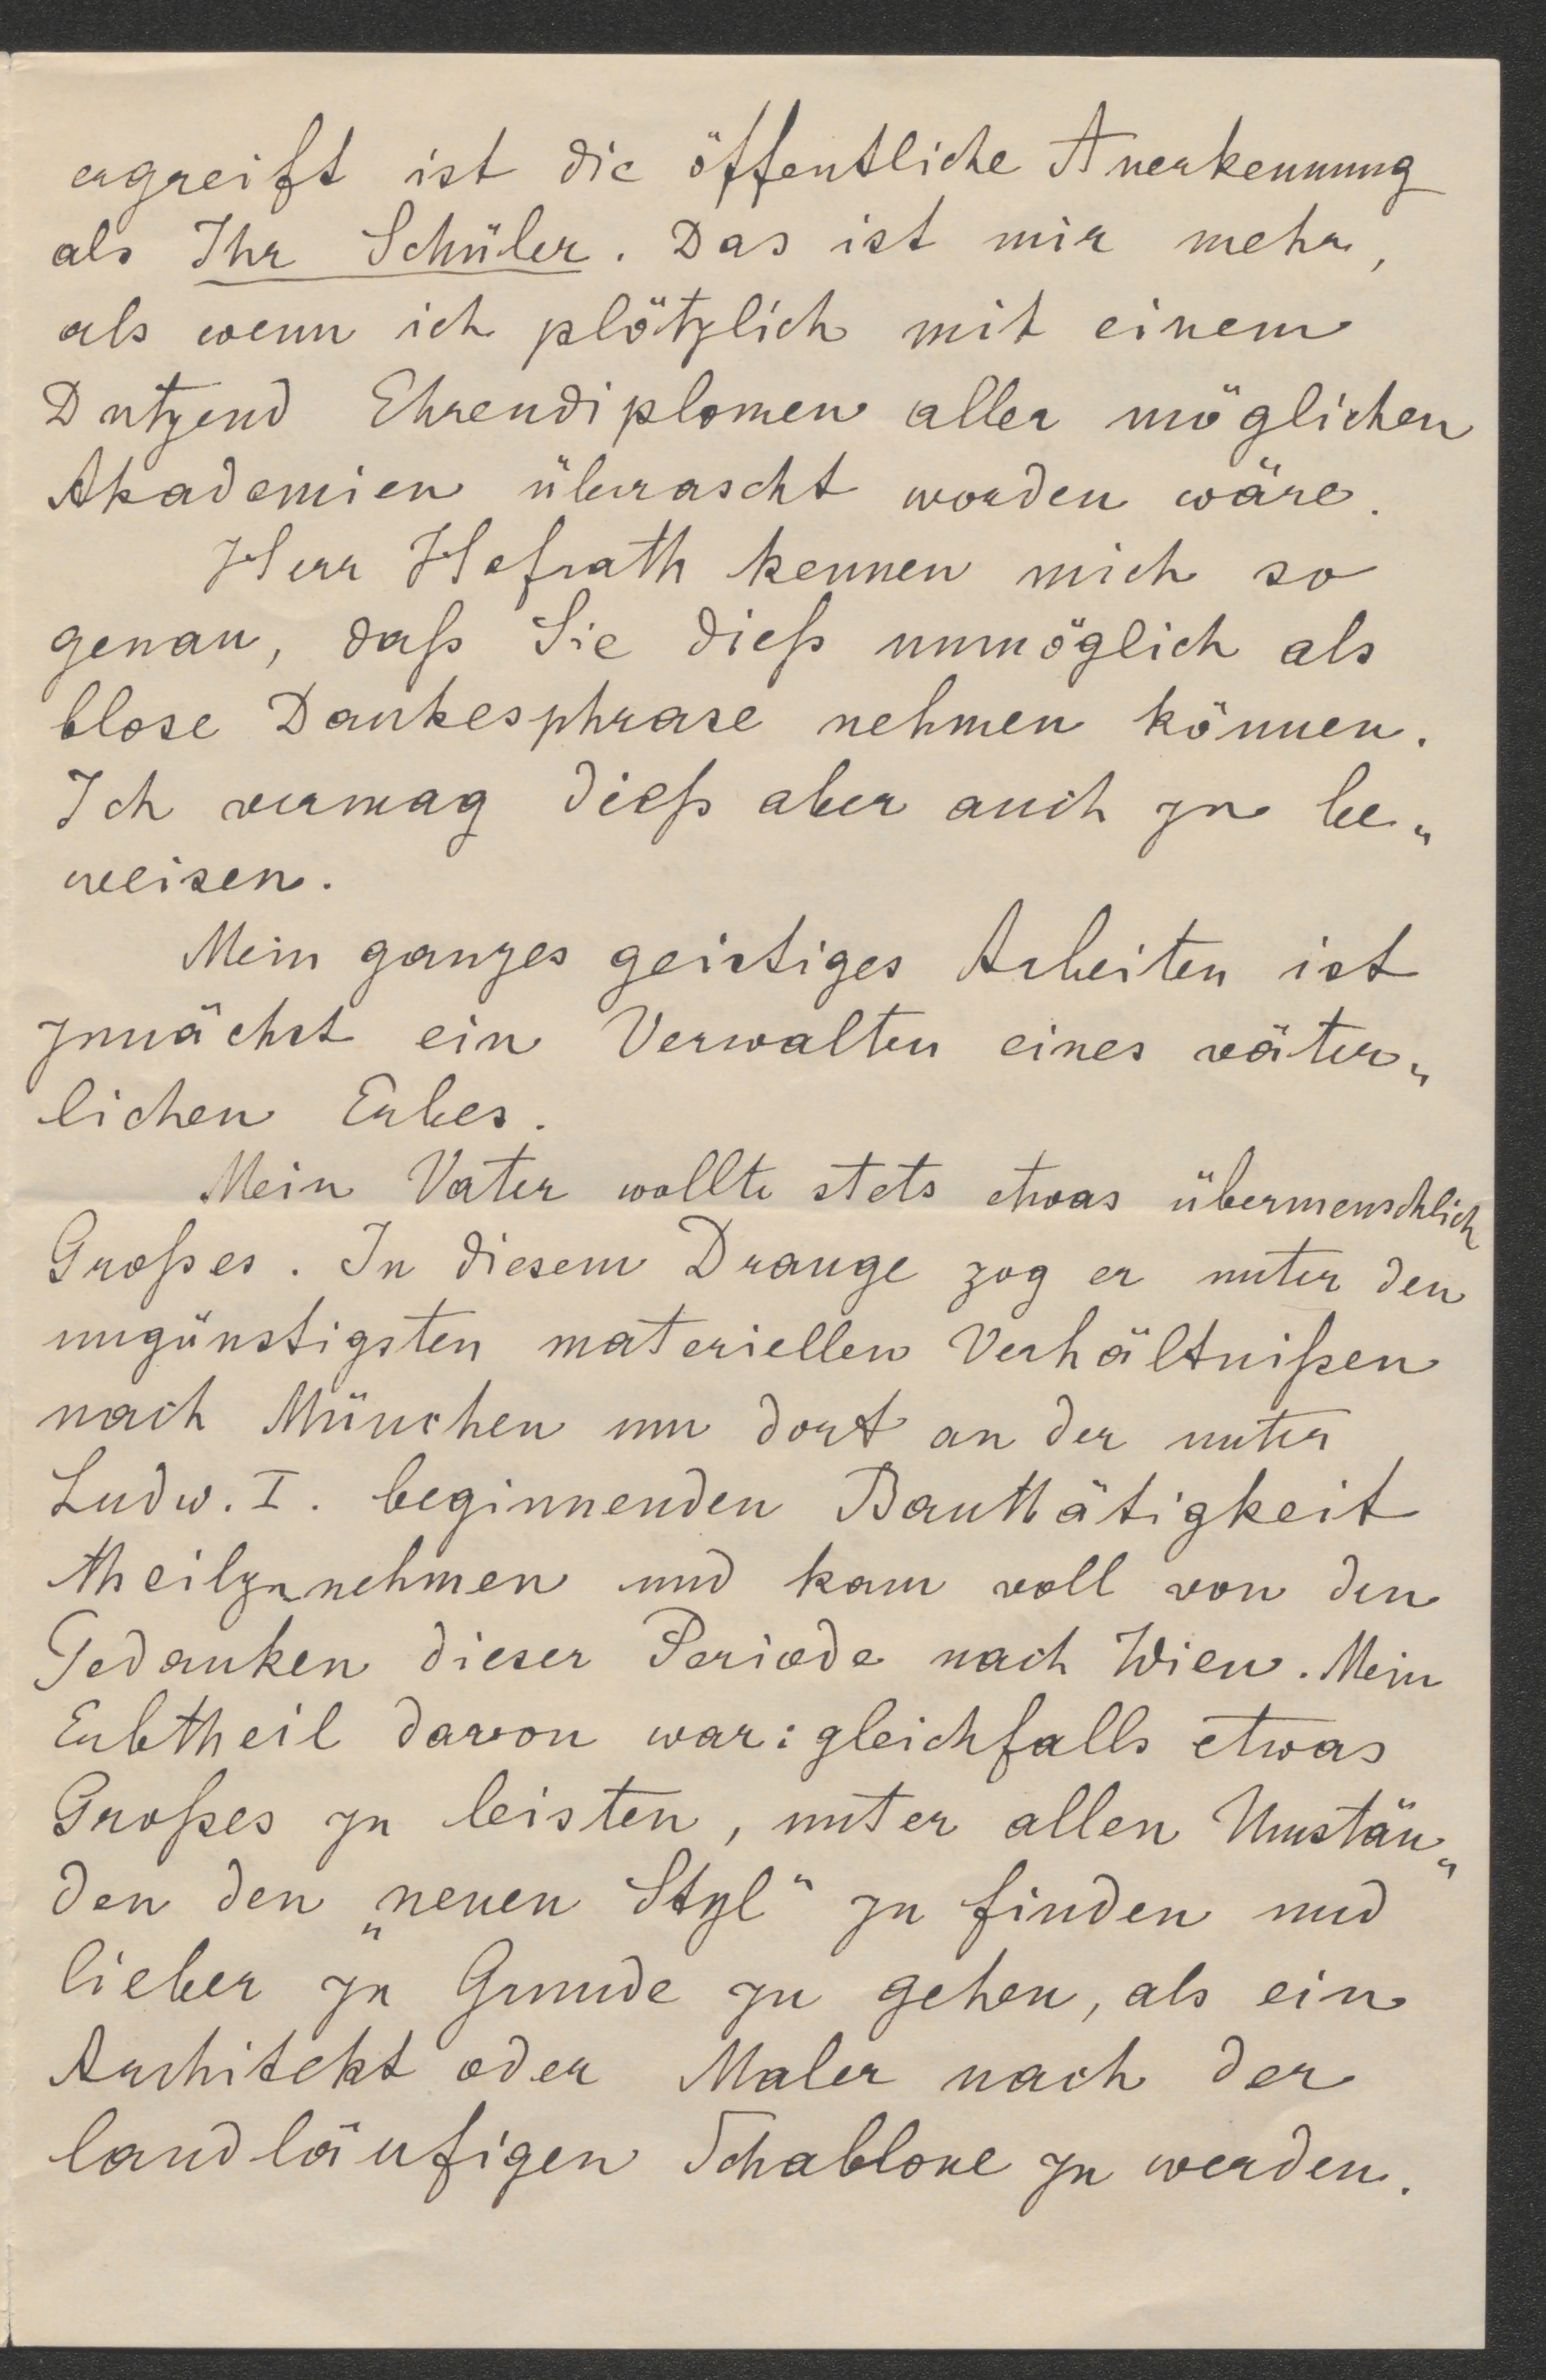 ergreift ist die öffentliche Anerkennung
als Ihr Schüler. Das ist mir mehr,
als wenn ich plötzlich mit einem
Dutzend Ehrendiplomen aller möglichen
Akademien überrascht worden wäre.
Herr Hofrath kennen mich so
genau, daß Sie dieß unmöglich als
blose Dankesphrase nehmen können.
Ich vermag dieß aber auch zu be„
weisen.
Mein ganzes geistiges Arbeiten ist
zunächst ein Verwalten eines väter„
lichen Erbes.
Mein Vater wollte stets etwas übermenschlich
Großes. In diesem Drange zog er unter den
ungünstigsten materiellen Verhältnißen
nach München um dort an der unter
Ludw. I. beginnenden Bauthätigkeit
theilzunehmen und kam voll von den
Gedanken dieser Periode nach Wien. Mein
Erbtheil davon war: gleichfalls etwas
Großes zu leisten, unter allen Umstän„
den den „neuen Styl“ zu finden und
lieber zu Grunde zu gehen, als ein
Architekt oder Maler nach der
landläufigen Schablone zu werden.